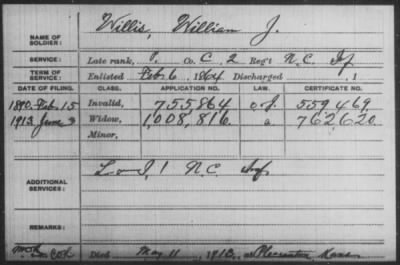 NAME OF SOLDIER: Willis, William J.
SERVICE: Late rank, P. Co. C, 2 Reg't N.C. Inf
TERM OF SERVICE: Enlisted Feb. 6, 1864 Discharged , 1
DATE OF FILING. CLASS. APPLICATION NO. LAW. CERTIFICATE NO.
1890 Feb. 15 Invalid, 755,864 559469
1913 June 3 Widow, 1,008,816. a 762,620
Minor,
ADDITIONAL SERVICES: 1 N.C. Inf
REMARKS:
Died May 11, 1913, at Pleasanton Kans